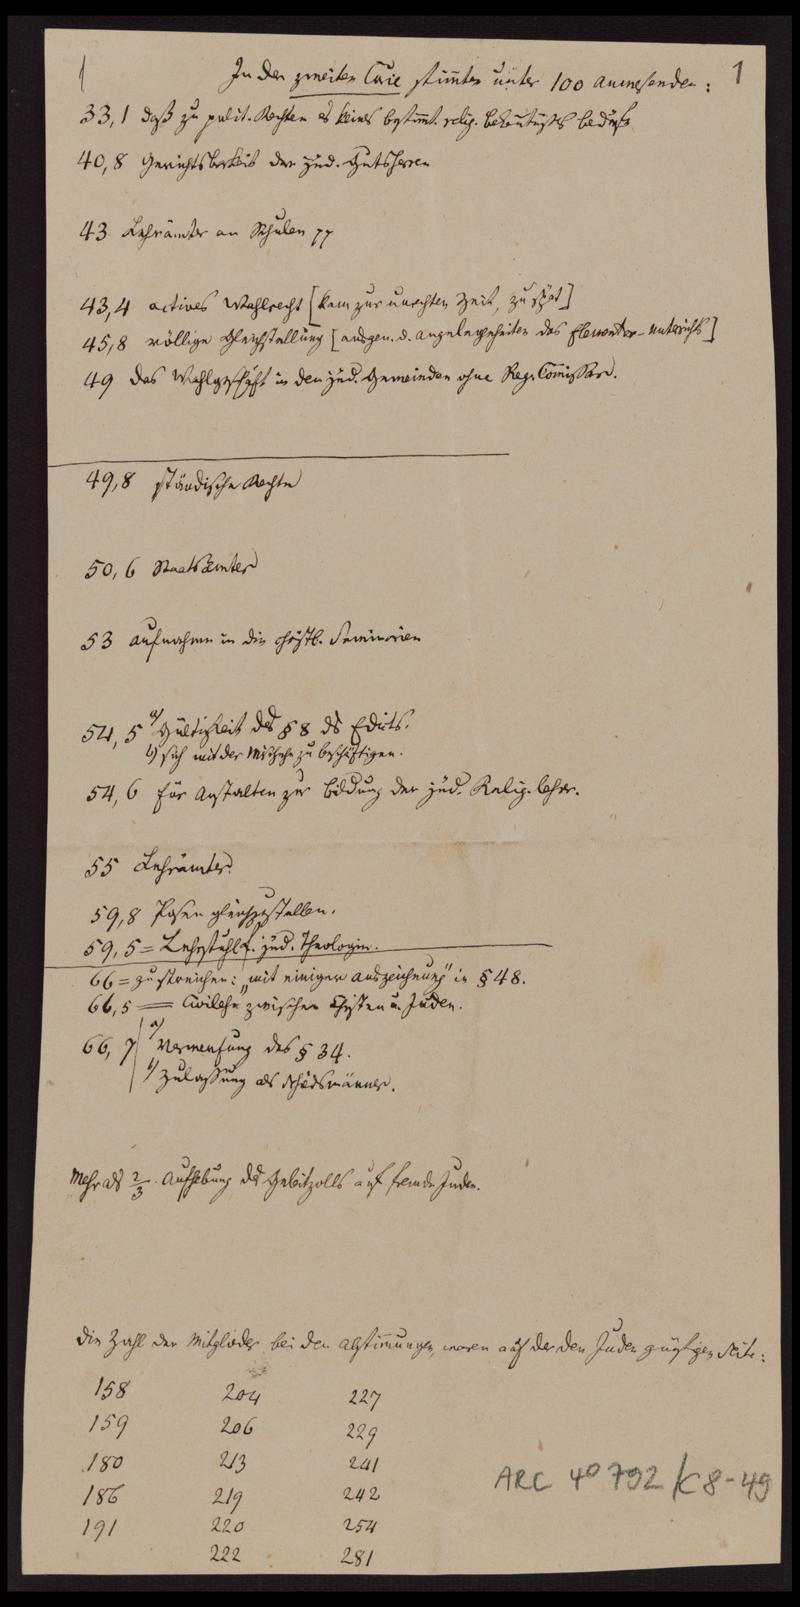 1
1
In der zweiten Curie stimten unter 100 Anwesenden:
33,1 daß zu polit. Rechten es keines bestimt. relig. Bekentnisses bedürfe
40,8 Gerichtsbarkeit der jüd. Gutsherren
43 Lehrämter an Schulen pp
43,4 actives Wahlrecht [kam zur unrechten Zeit, zu spät]
45,8 völlige Gleichstellung [ausgen. d. Angelegenheiten des Elementar-Unterichts]
49 das Wahlgeschäft in den jüd. Gemeinden ohne Reg. Comissar.
49,8 ständische Rechte
50,6 Staatsämter
53 Aufnahme in die christl. Seminarien
54,5 a) Gültigkeit des § 8 des Edicts.
b) sich mit der Mischehe zu beschäftigen.
54,6 für Anstalten zur Bildung der jüd. Relig. lehrer.
55 Lehrämter.
59,8 Posen gleichzustellen.
59,5 = Lehrstuhl f. jüd. Theologie.
66 = zu streichen: „mit einiger Auszeichnung" in § 48.
66,5 = Civilehe zwischen Christen u. Juden.
66,7 a) Verwerfung des § 34.
b) Zulassung als Schiedsmänner.
Mehr als 2/3. Aufhebung des Geleitzolls auf fremde Juden.
Die Zahl der Mitglieder bei den Abstimungen waren auf der den Juden günstigen Seite:
158 204 227
159 206 229
180 213 241
186 219 242
191 220 254
222 281
ARC 4° 792 / C 8-49